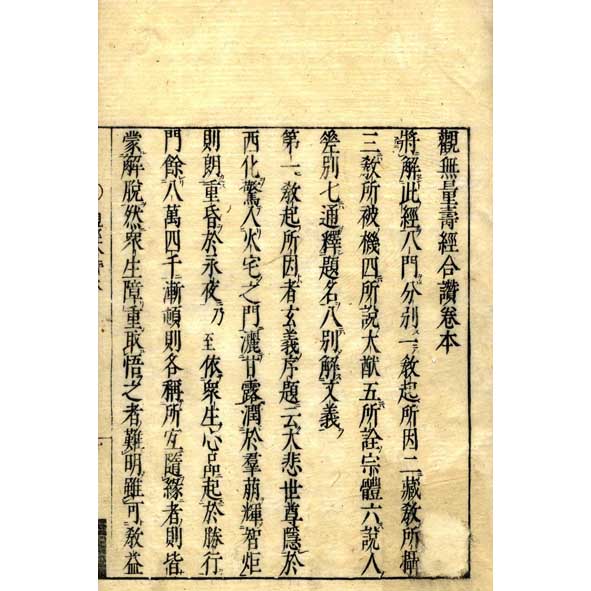 觀無量壽經合讚卷本
將解此經八門分別一敎起所因二藏敎所攝
三敎所被機四所說大猷五所詮宗體六說人
差別七通釋題名八別解文義
第一敎起所因者玄義序題云大悲世尊隱於
西化驚入火宅之門灑甘露潤於羣萌輝智炬
則朗重昏於永夜乃至依衆生心起於勝行
門餘八萬四千漸頓則各稱所宐隨緣者則皆
蒙解脫然衆生障重取悟之者難明雖可敎益